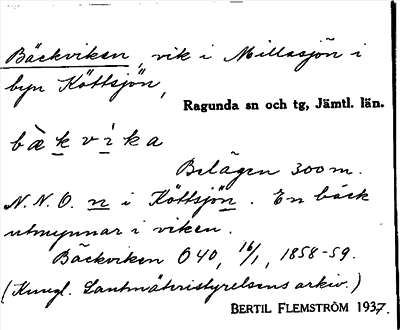 Bäckviken, vik i Millasjön i
byn Köttsjön,
Ragunda sn och tg, Jämtl. län.
bæ̀kvìka
Belägen 300 m.
N.N.O. n i Köttsjön. En bäck
utmynnar i viken.
Bäckviken O40, 16/1, 1858-59.
(Kungl. Lantmäteristyrelsens arkiv.)
BERTIL FLEMSTRÖM 1937.